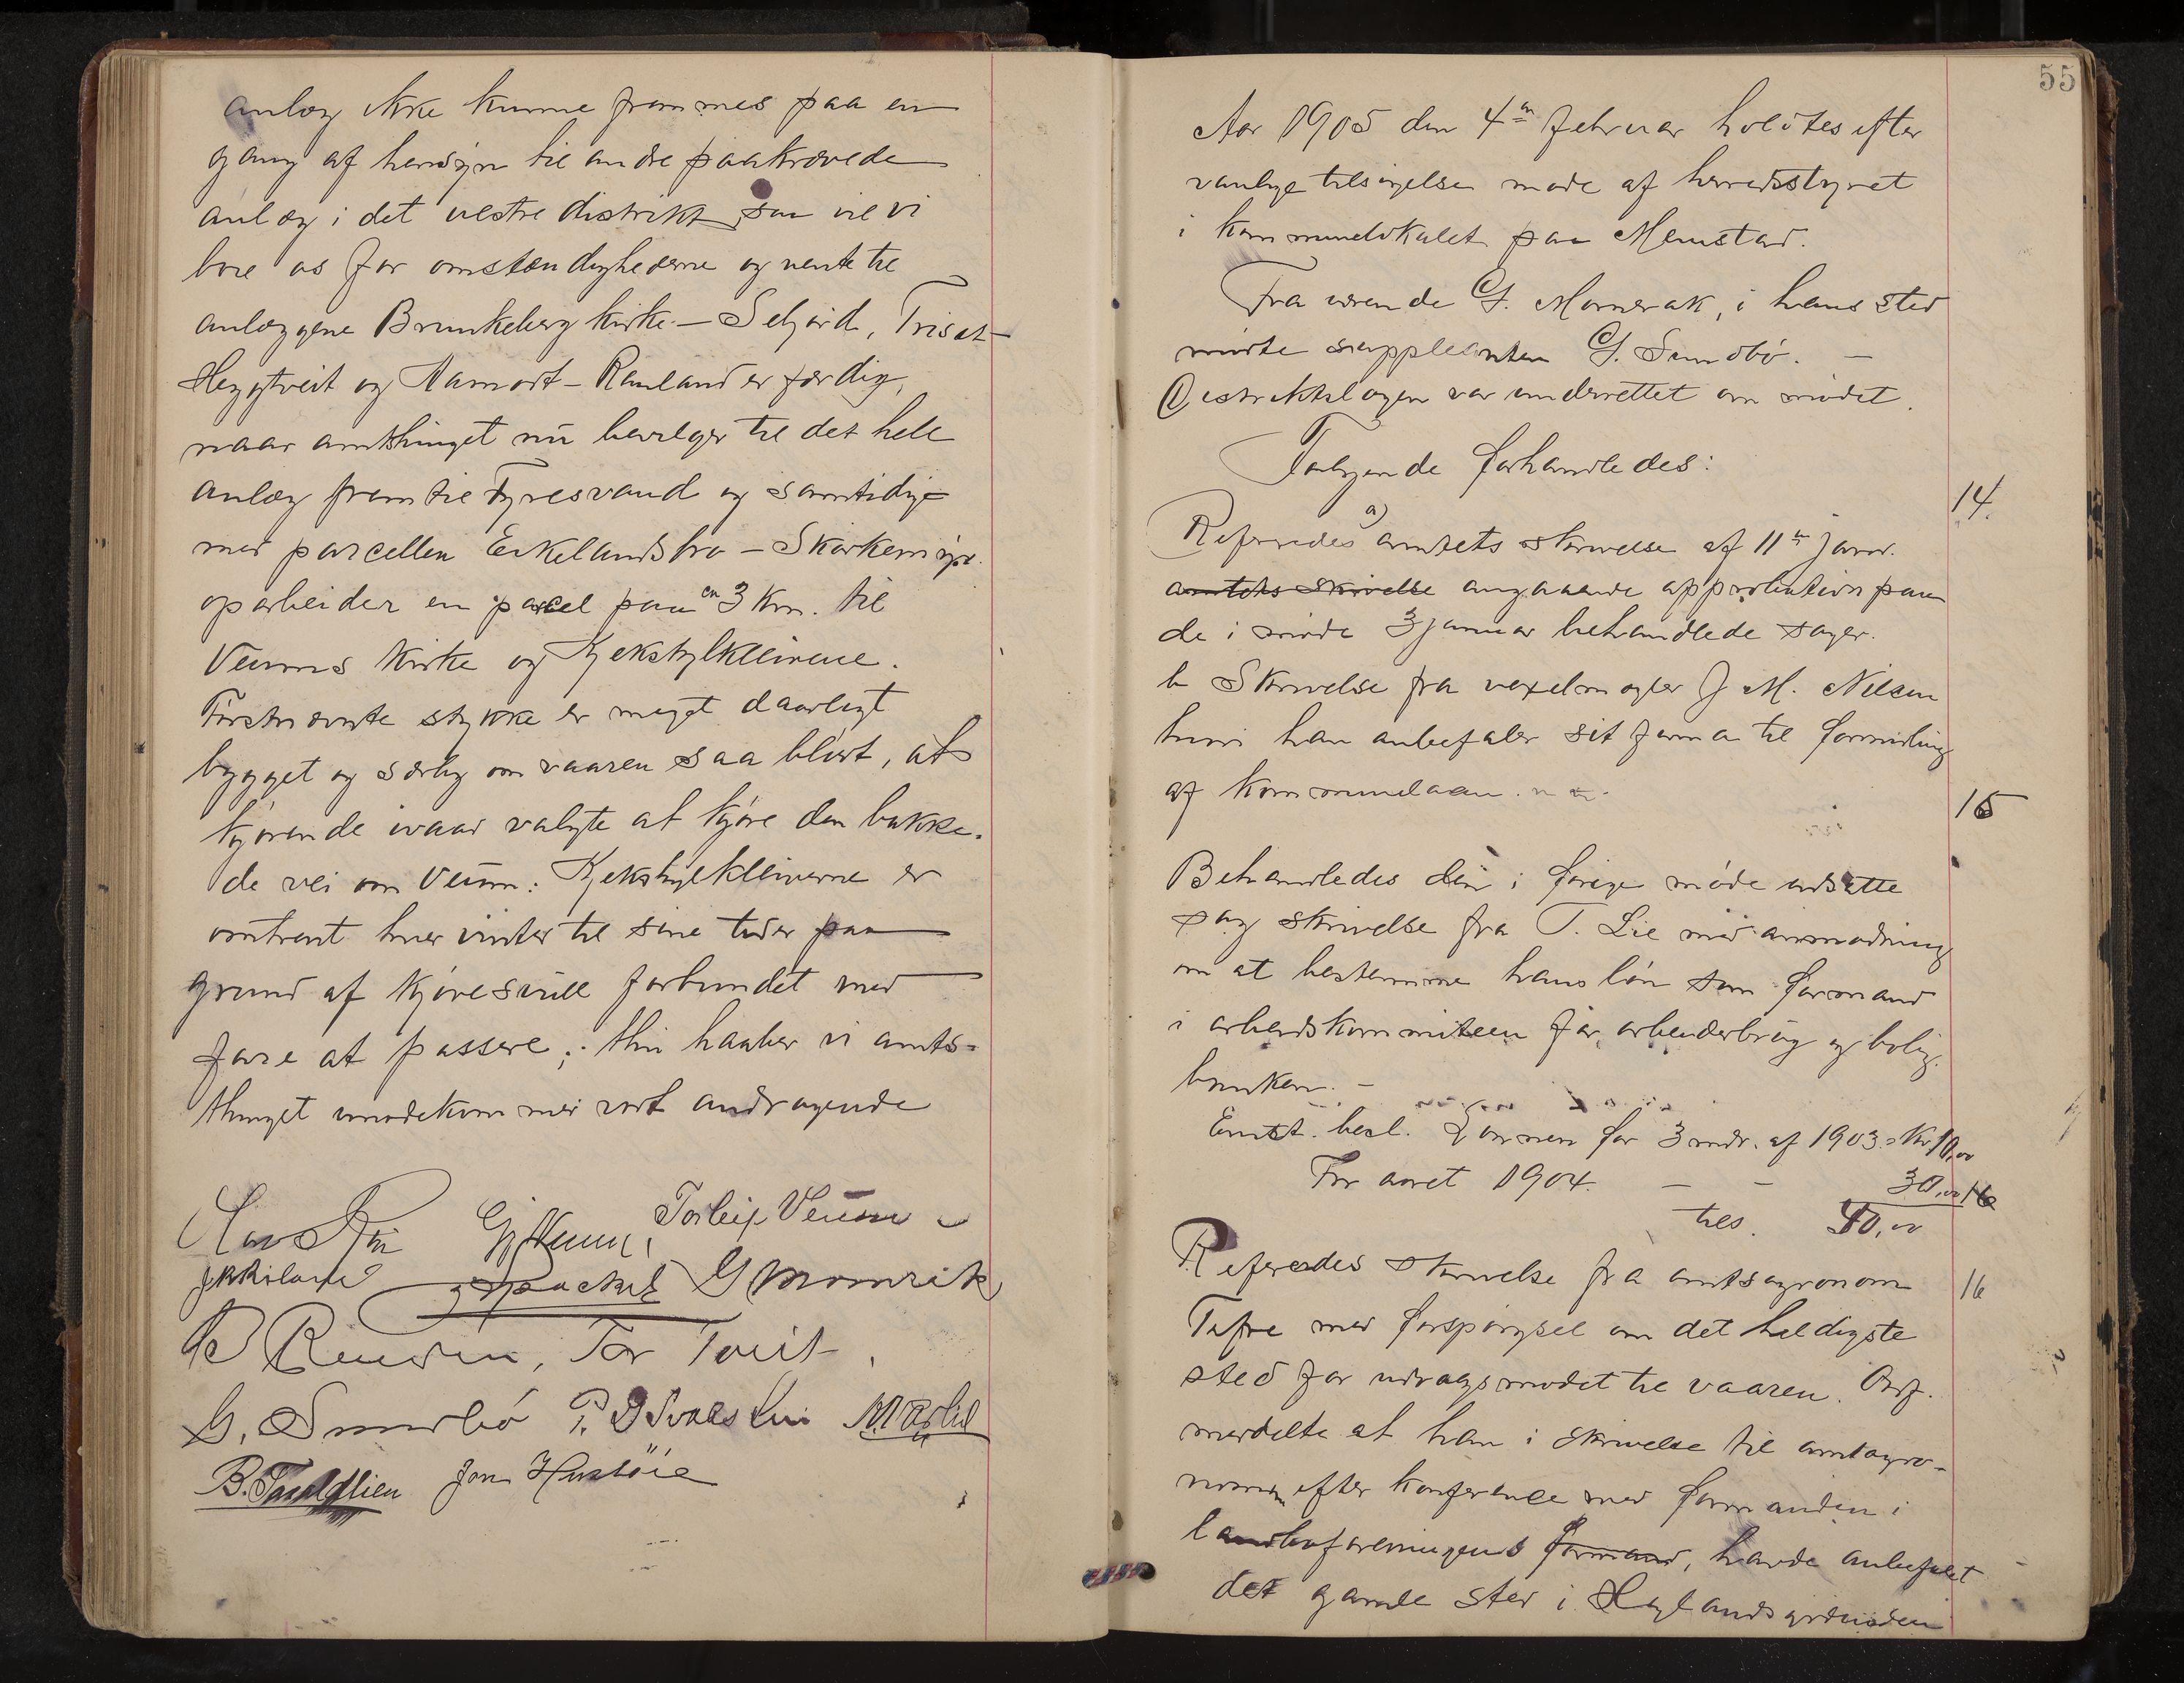 anlæg ikke kunne frammes paa en
gang af hensyn til andre paakrævede
anlæg i det vestre distrikt, saa vil vi
bøie os for omstændighederne og vente til
anlæggene Brunkeberg kirke – Seljord, Trisæt –
Heggtveit og Aamodt – Rauland er færdig,
naar amtsthinget nu bevilger til det hele
anlæg frem til Fyresvand og samtidig
med parcellen Eikelandsbro – Skarkemyr
oparbeider en parcel paa ca 3 km. til
Veums kirke og Kjekstylkleivene.
Førstnævnte stykke er meget daarligt
bygget og særlig om vaaren saa bløtt, at
kjørende ivaar valgte at kjøre den bakke-
de vei om Veum. Kjekstylkleiverne er
omtrent hver vinter til sine tider paa
grund af kjøresvull forbundet med
fare at passere; thi haaber vi amts-
thinget imødekommer vort andragende
G. Veum, Torleif Veum
G Momrak
Tor Tveit
G. Sundbø
Jon Hustøie
55
Aar 1905 den 4de februar holdtes efter
vanlige tilsigelse møde af herredsstyret
i kommunelokalet paa Moustad.
Fraværende G. Momrak, i hans sted
mødte suppleanten G. Sundbø. –
Distriktslægen var underrettet om mødet.
Følgende forhandledes:
14.
Refereredes a) amtets skrivelse af 11te janr.
amtets skrivelse angaaende approbation paa
de i møde 3 januar behandlede sager.
b Skrivelse fra vexelmægler J. M. Nilsen
hvori han anbefaler sit firma til formidling
af kommunelaan.
15
Behandledes den i forige møde udsatte
sag skrivelse fra T. Lie med anmodning
om at bestemme hans løn som formand
i arbeidskommiteen for arbeiderbrug og bolig-
banken. –
Enst. besl. Lønnen for 3 mdr. af 1903 = Kr 10,00
For aaret 1904. – – 30,00 16
tils. 40,00
Refereredes skrivelse fra amtsagronom 16
Tufte med forspørgsel om det heldigste
sted for udvalgsmødet til vaaren. Ordf.
meddelte at han i skrivelse til amtagro-
nomen efter konference med formanden i
landboforeningens formand, havde anbefalet
det gamle sted i Heglandsgrænden